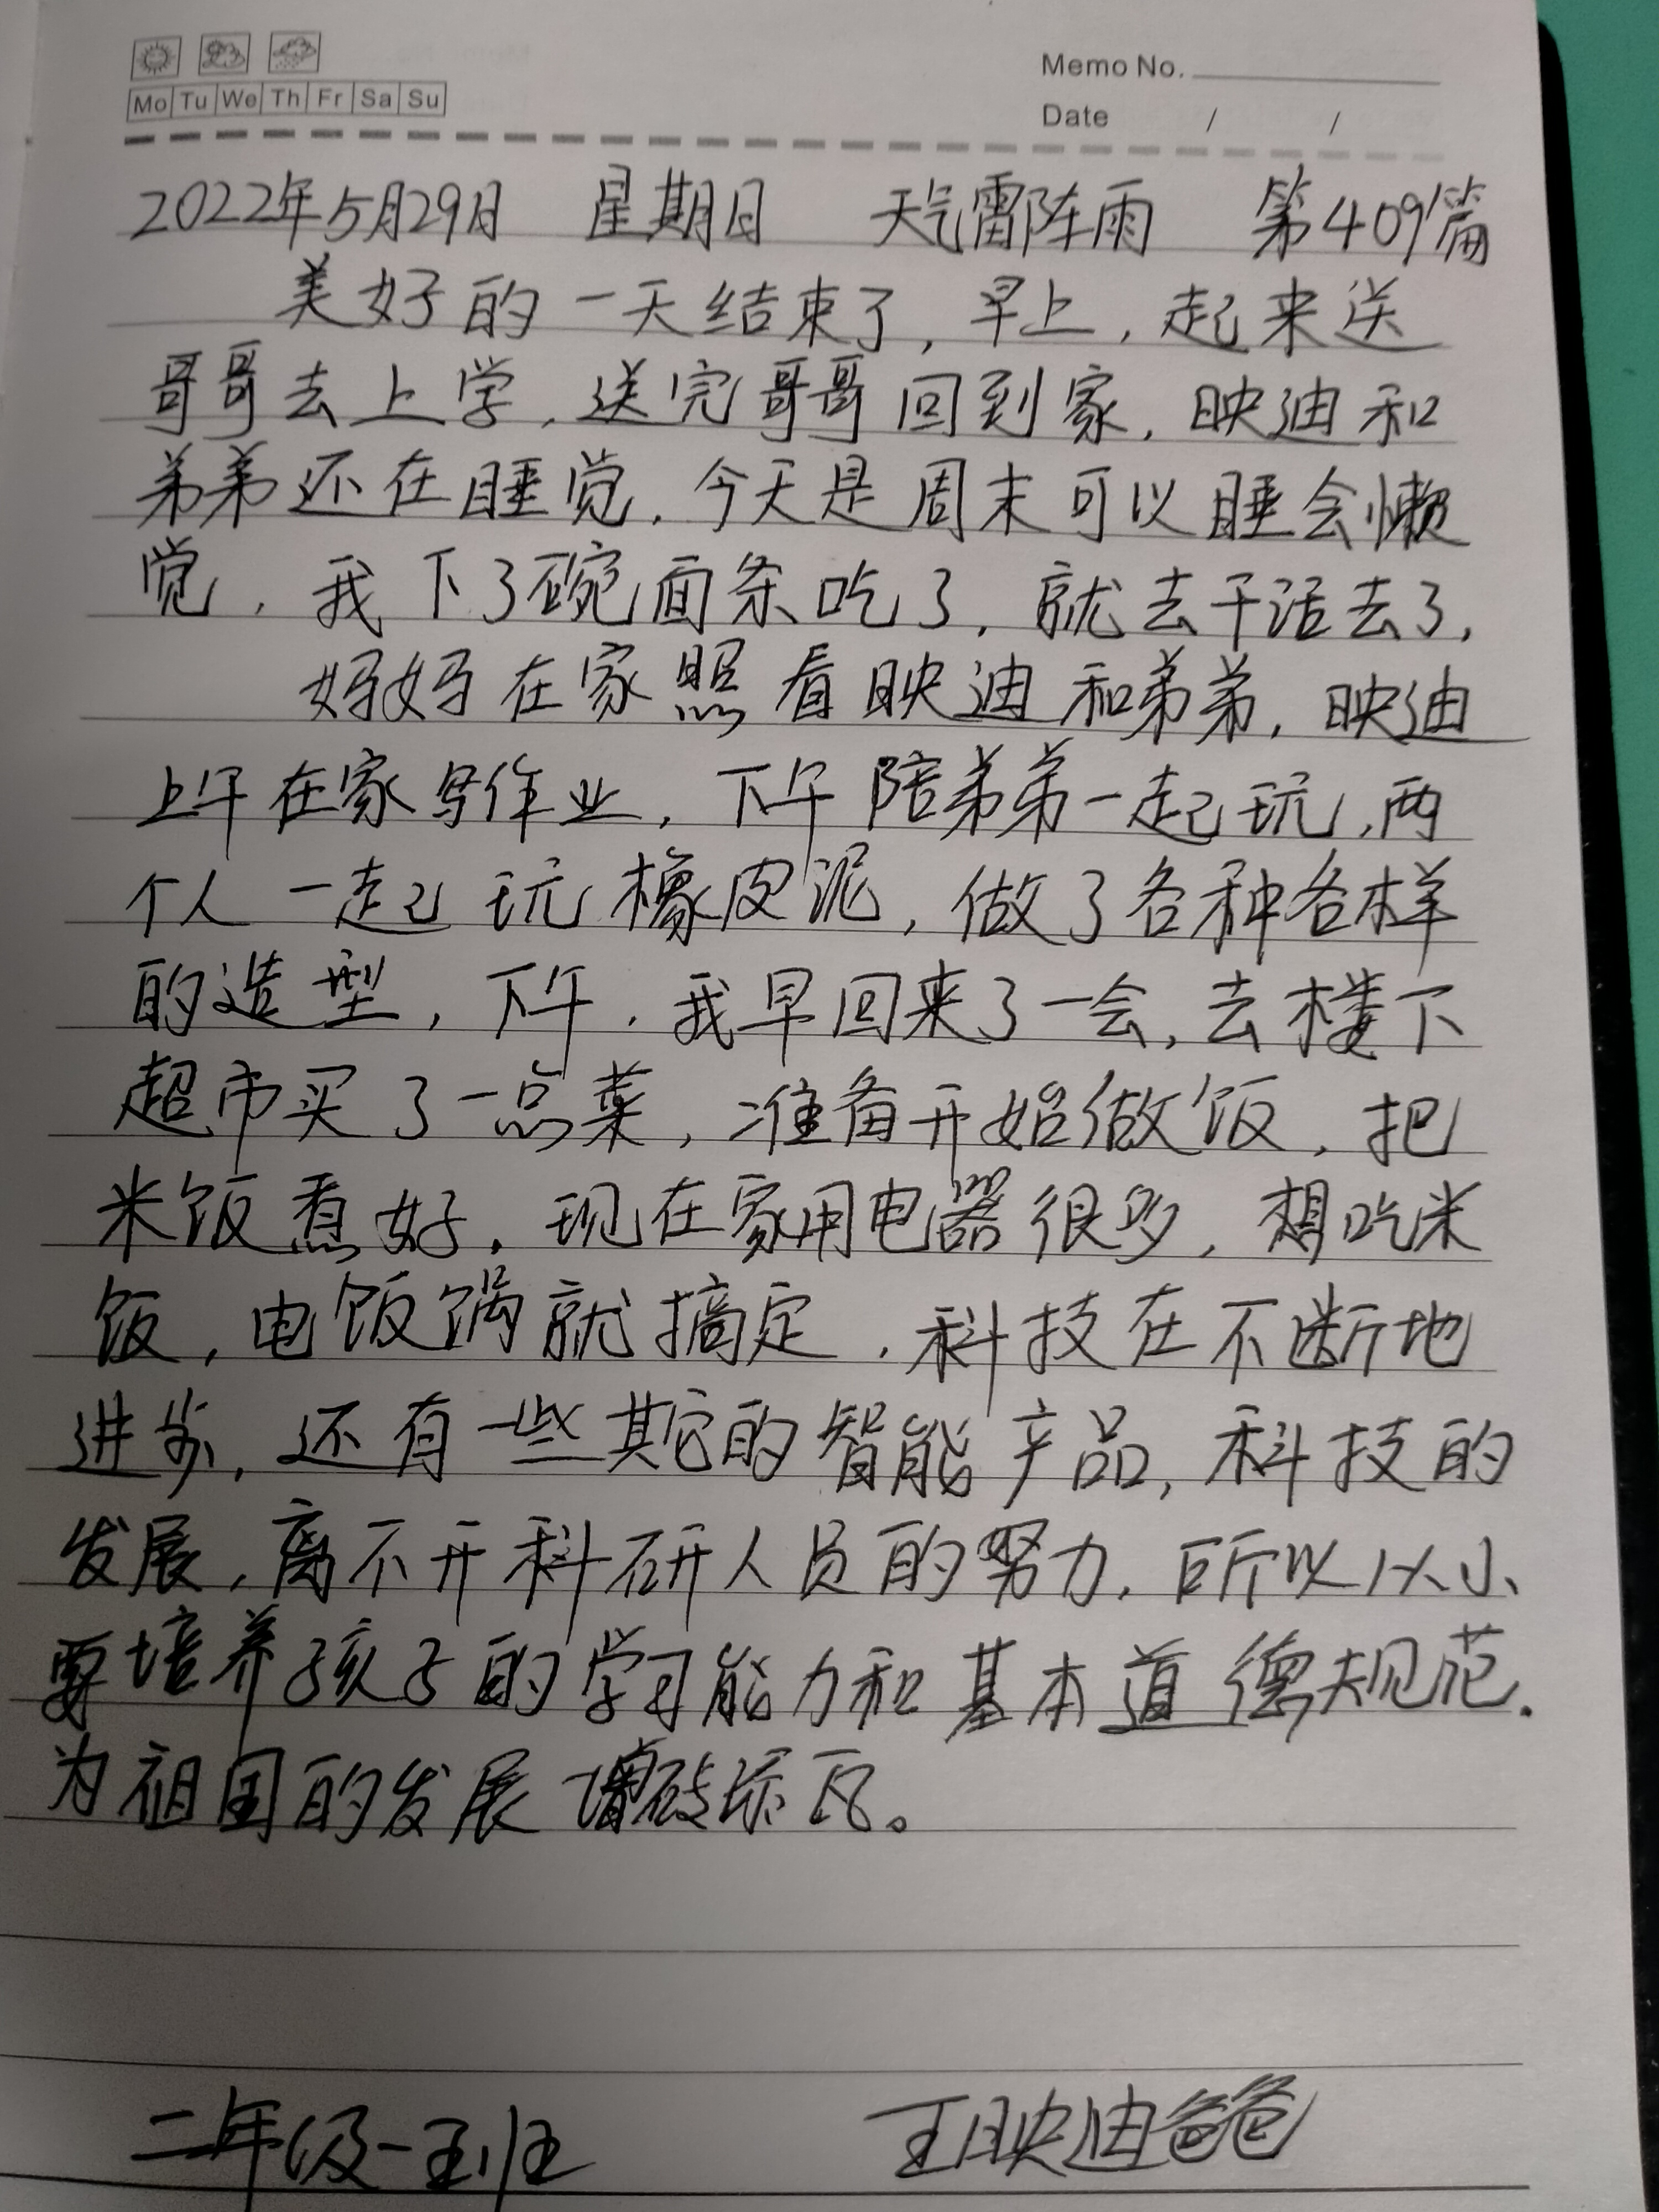 Mo Tu We Th Fr Sa Su
Memo No.
Date / /
2022年5月29日 星期日 天气雷阵雨 第409篇
美好的一天结束了,早上,起来送
哥哥去上学,送完哥哥回到家,映迪和
弟弟还在睡觉,今天是周末可以睡会懒
觉,我下了碗面条吃了,就去干活去了,
妈妈在家照看映迪和弟弟,映迪
上午在家写作业,下午陪弟弟一起玩,两
个人一起玩橡皮泥,做了各种各样
的造型,下午,我早回来了一会,去楼下
超市买了一点菜,准备开始做饭,把
米饭煮好,现在家用电器很多,想吃米
饭,电饭锅就搞定,科技在不断地
进步,还有一些其它的智能产品,科技的
发展,离不开科研人员的努力,所以从小
要培养孩子的学习能力和基本道德规范.
为祖国的发展增砖添瓦。
二年级一班 王映迪爸爸